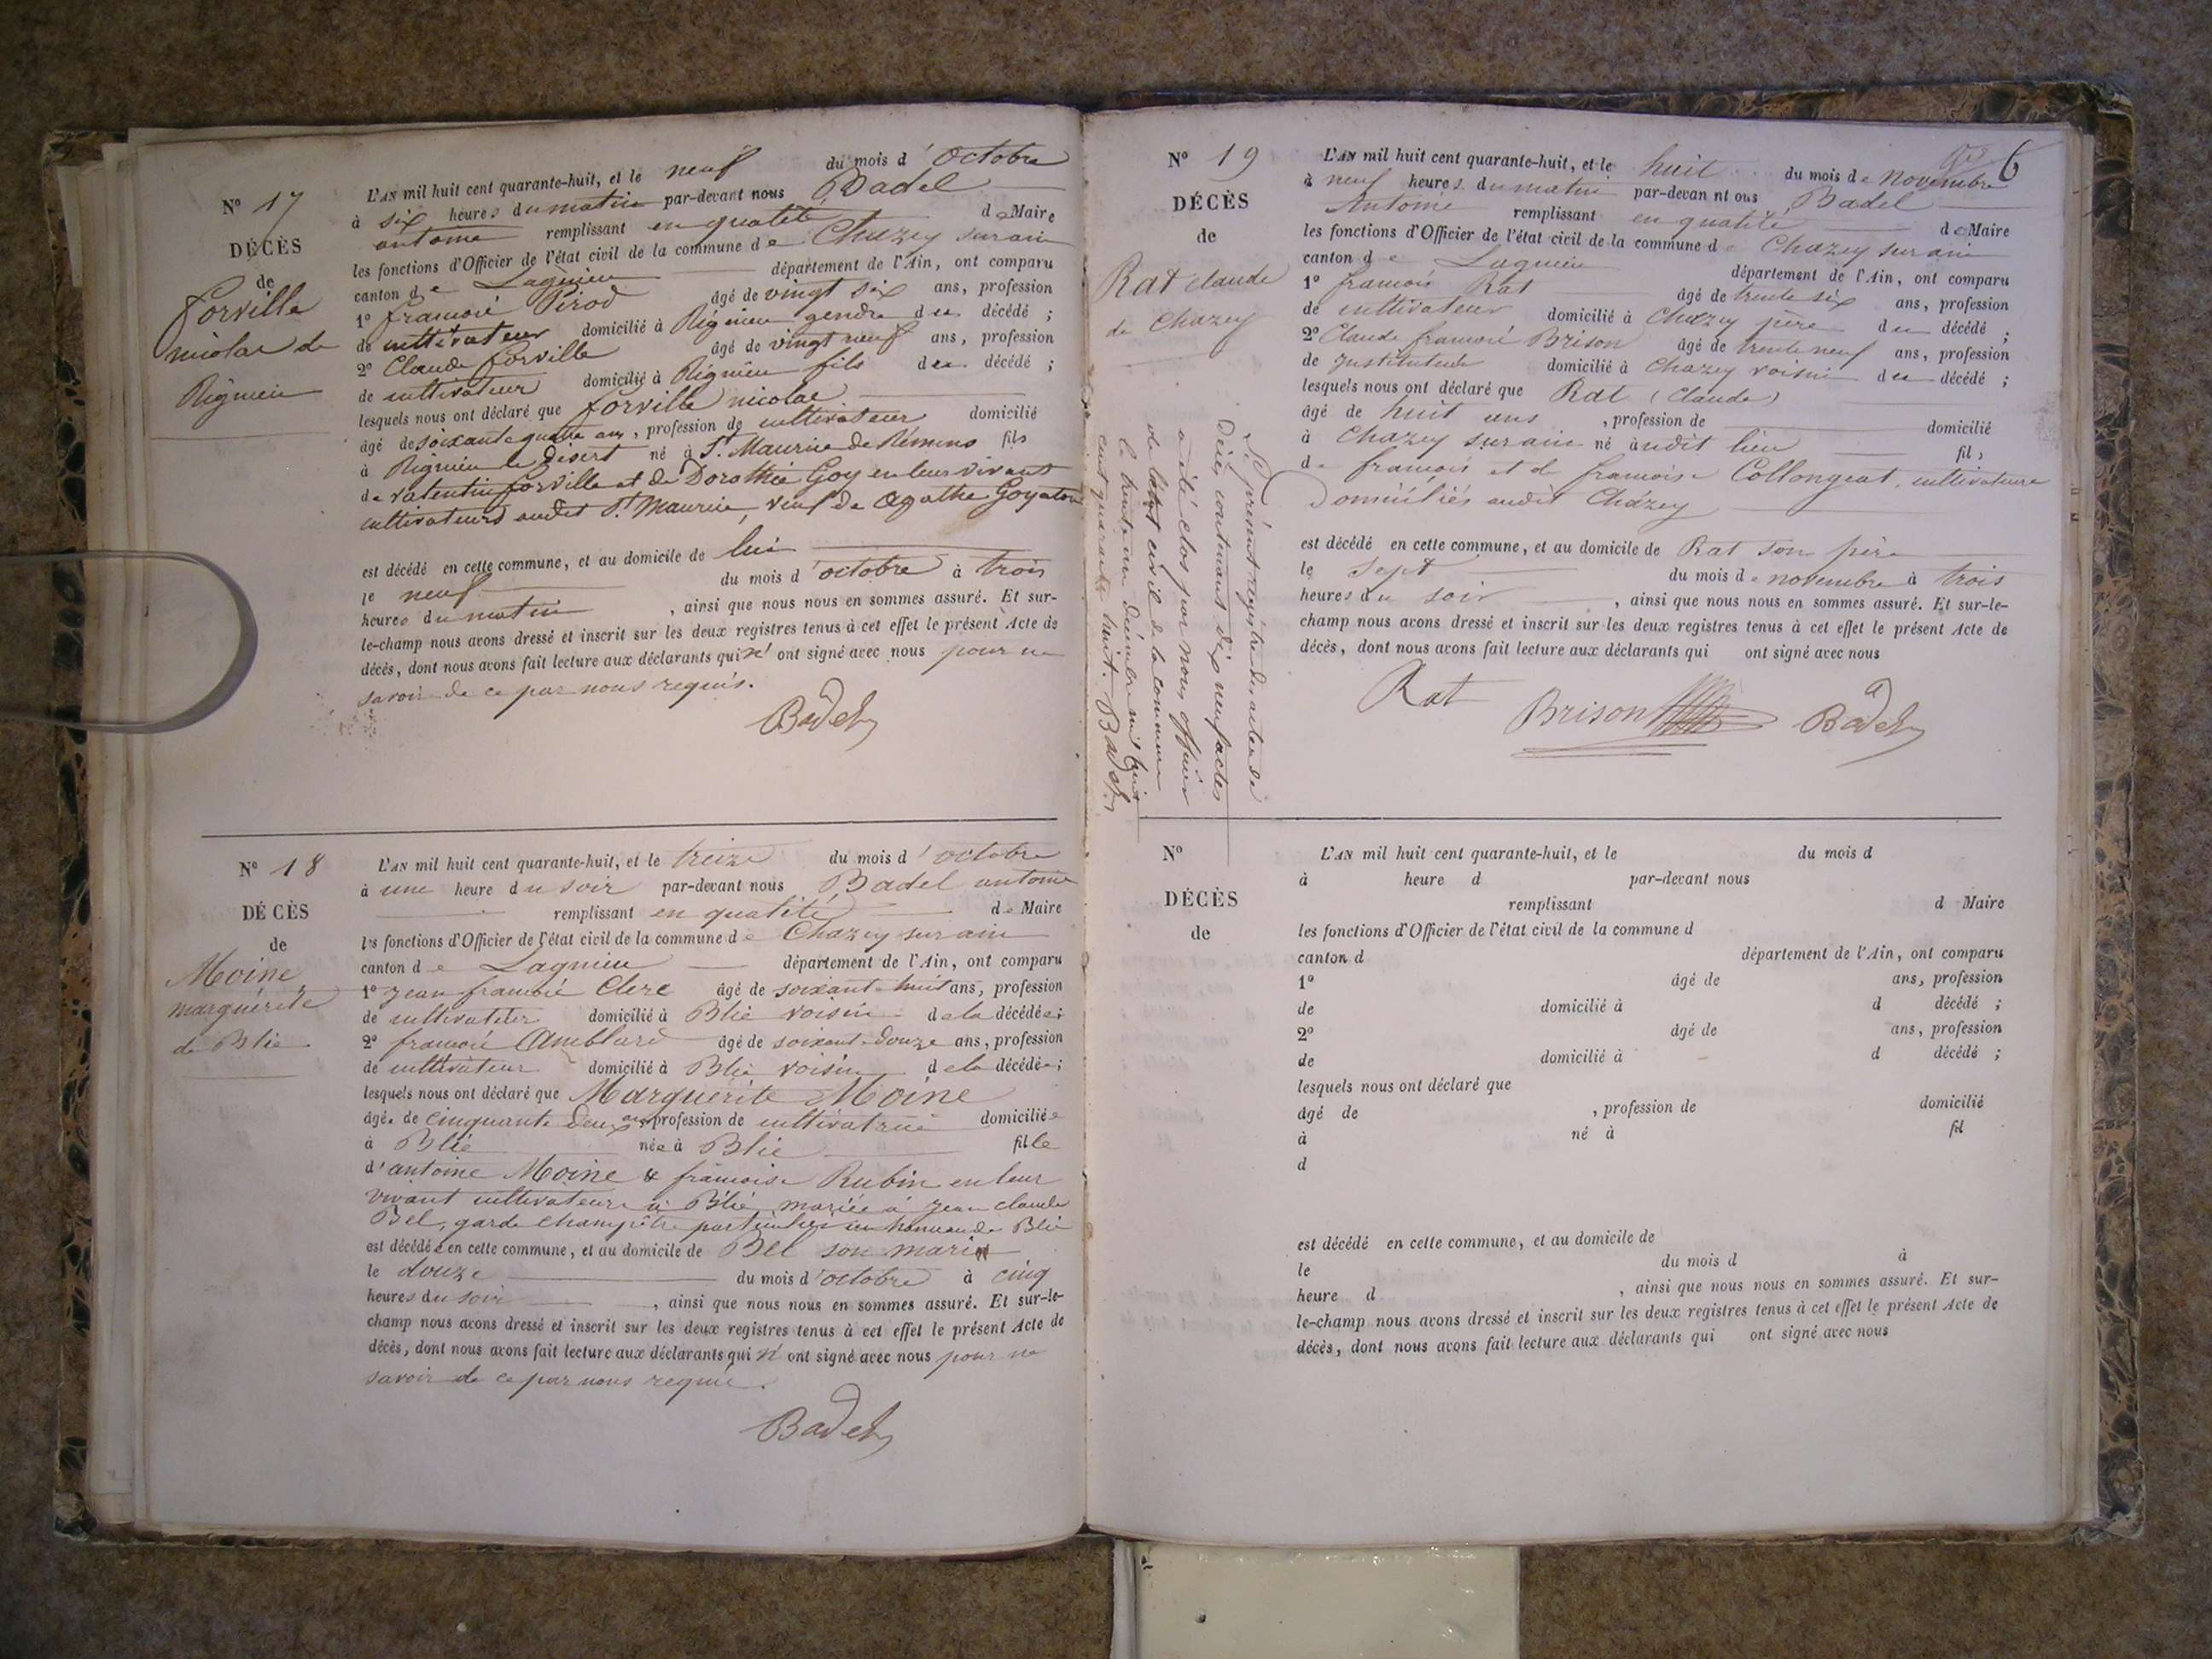 N° 17
DÉCÈS
de
forville
nicolas de
Rignieu
L'AN mil huit cent quarante-huit, et le neuf du mois d'Octobre
à six heures du matin par-devant nous Badel
antoine remplissant en qualité de Maire
les fonctions d'Officier de l'état civil de la commune de Chazey sur ain
canton de Lagnieu département de l'Ain, ont comparu
1° françois Pirod âgé de vingt six ans, profession
de cultivateur domicilié à Rignieu gendre du décédé ;
2° Claude forville âgé de vingt neuf ans, profession
de cultivateur domicilié à Rignieu fils du décédé ;
lesquels nous ont déclaré que forville nicolas
âgé de soixante quatre ans, profession de cultivateur domicilié
à Rignieu le désert né à St. Maurice de Rémens fils
de valentin forville et de Dorothée Goy en leur vivant
cultivateurs audit St. Maurice, veuf de Agathe Goyaton
est décédé en cette commune, et au domicile de lui
le neuf du mois d'octobre à trois
heures du matin , ainsi que nous nous en sommes assuré. Et sur-
le-champ nous avons dressé et inscrit sur les deux registres tenus à cet effet le présent Acte de
décès, dont nous avons fait lecture aux déclarants qui n'ont signé avec nous pour ne
savoir de ce par nous requis.
Badel
N° 18
DÉCÈS
de
Moine
marguerite
de Blie
L'AN mil huit cent quarante-huit, et le treize du mois d'octobre
à une heure du soir par-devant nous Badel antoine
remplissant en qualité de Maire
les fonctions d'Officier de l'état civil de la commune de Chazey sur ain
canton de Lagnieu département de l'Ain, ont comparu
1° jean françois Clerc âgé de soixante huit ans, profession
de cultivateur domicilié à Blie voisin de la décédée ;
2° françois Amblard âgé de soixante douze ans, profession
de cultivateur domicilié à Blie voisin de la décédée ;
lesquels nous ont déclaré que Marguerite Moine
âgée de cinquante deux ans, profession de cultivatrice domiciliée
à Blie née à Blie fille
d'antoine Moine & françoise Rubin en leur
vivant cultivateurs à Blie, mariée à jean claude
Bel, garde champêtre particulier au hameau de Blie
est décédée en cette commune, et au domicile de Bel son mari
le douze du mois d'octobre à cinq
heures du soir , ainsi que nous nous en sommes assuré. Et sur-le-
champ nous avons dressé et inscrit sur les deux registres tenus à cet effet le présent Acte de
décès, dont nous avons fait lecture aux déclarants qui n'ont signé avec nous pour ne
savoir de ce par nous requis.
Badel
6
N° 19
DÉCÈS
de
Rat claude
de Chazey
L'AN mil huit cent quarante-huit, et le huit du mois de novembre
à neuf heures du matin par-devan nt ous Badel
Antoine remplissant en qualité de Maire
les fonctions d'Officier de l'état civil de la commune de Chazey sur ain
canton de Lagnieu département de l'Ain, ont comparu
1° françois Rat âgé de trente six ans, profession
de cultivateur domicilié à Chazey père du décédé ;
2° Claude françois Brison âgé de trente neuf ans, profession
de Instituteur domicilié à Chazey voisin du décédé ;
lesquels nous ont déclaré que Rat (Claude)
âgé de huit ans , profession de domicilié
à Chazey sur ain né audit lieu fils
de françois et de françoise Collongeat, cultivateurs
Domiciliés audit Chazey
est décédé en cette commune, et au domicile de Rat son père
le Sept du mois de novembre à trois
heures du soir , ainsi que nous nous en sommes assuré. Et sur-le-
champ nous avons dressé et inscrit sur les deux registres tenus à cet effet le présent Acte de
décès, dont nous avons fait lecture aux déclarants qui ont signé avec nous
Rat Brison Badel
Le présent registre des actes de
Décès contenant dix neuf actes
a été clos par nous officier
de l'état civil de la commune
le trente un décembre mil huit
cent quarante huit. Badel
N°
DÉCÈS
de
L'AN mil huit cent quarante-huit, et le du mois d
à heure d par-devant nous
remplissant d Maire
les fonctions d'Officier de l'état civil de la commune d
canton d département de l'Ain, ont comparu
1° âgé de ans, profession
de domicilié à d décédé ;
2° âgé de ans, profession
de domicilié à d décédé ;
lesquels nous ont déclaré que
âgé de , profession de domicilié
à né à fil
d
est décédé en cette commune, et au domicile de
le du mois d à
heure d , ainsi que nous nous en sommes assuré. Et sur-
le-champ nous avons dressé et inscrit sur les deux registres tenus à cet effet le présent Acte de
décès, dont nous avons fait lecture aux déclarants qui ont signé avec nous